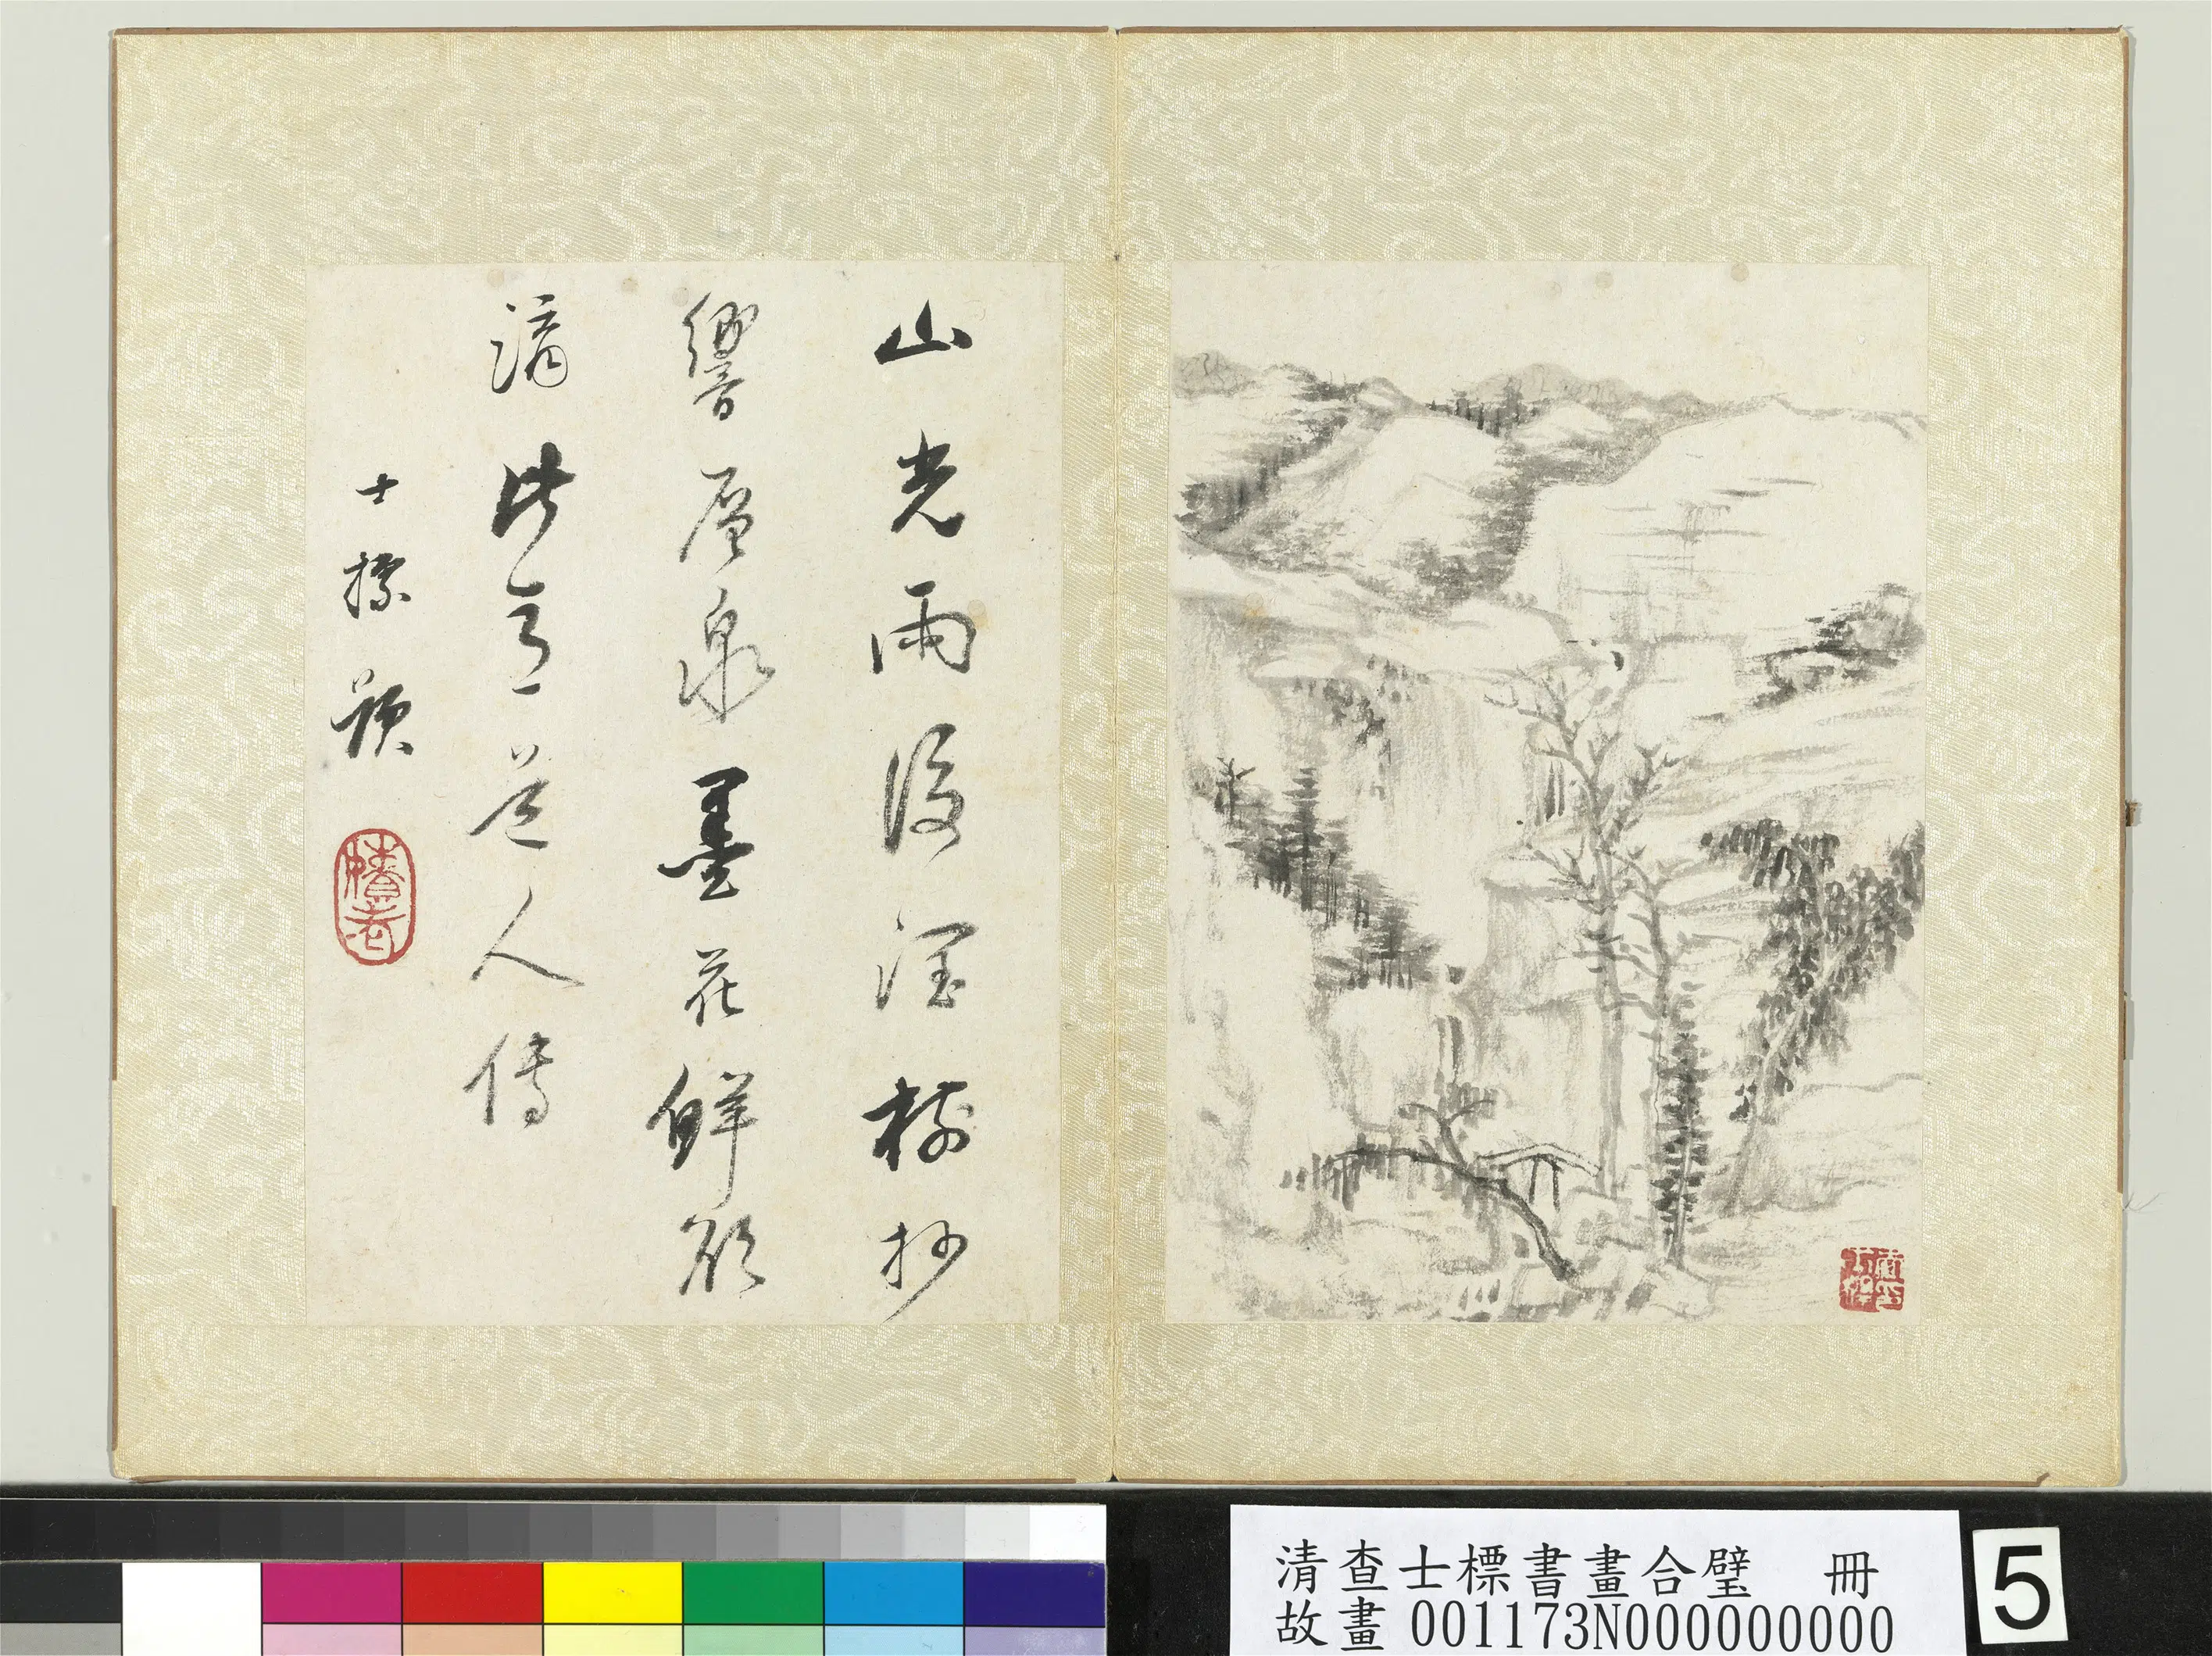 山光雨後樹杪
響層泉墨花鮮欲
滴此意道人傳
士標題
清查士標書畫合璧 冊
故畫 001173N000000000
5